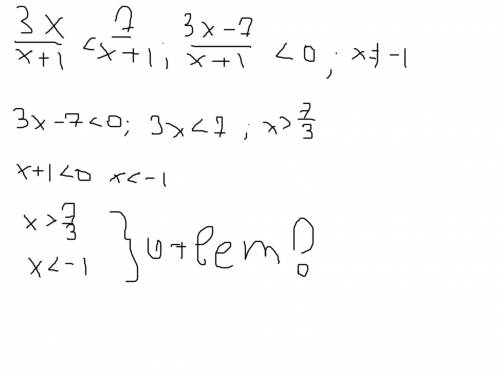 3x/(x+1) < 7/(x+1); (3x-7)/(x+1) < 0; x≠-1
3x-7<0; 3x<7; x>7/3
x+1<0 x<-1
x>7/3
x<-1 } ответ!